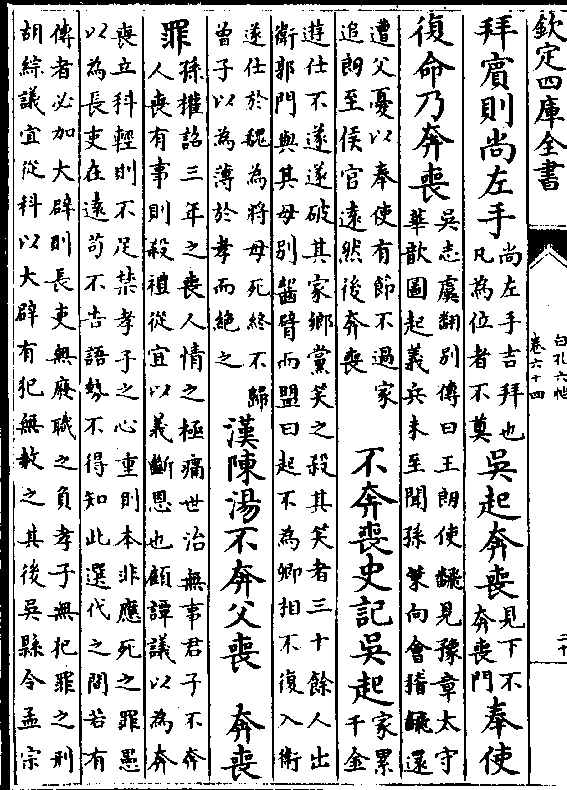 欽定四庫全書
白孔六帖
卷六十四
二十
拜賔則尚左手
尚左手吉拜也
凡為位者不奠
吳起奔喪
見下不
奔喪門
奉使
復命乃奔喪
吳志虞翻別傳曰王朗使翻見豫章太守
華歆圖起義兵未至聞孫策向會稽翻還
遭父憂以奉使有節不過家
追朗至侯官遠然後奔喪
不奔喪史記吳起
家累
千金
遊仕不遂遂破其家鄉黨笑之殺其笑者三十餘人出
衛郭門與其母別齧臂而盟曰起不為卿相不復入衛
遂仕於魏為將母死終不歸
曾子以為薄於孝而絶之
漢陳湯不奔父喪 奔喪
罪
孫權詔三年之喪人情之極痛世治無事君子不奔
人喪有事則殺禮從宜以義斷恩也顧譚議以為奔
喪立科輕則不足禁孝子之心重則本非應死之罪愚
以為長吏在遠苟不告語勢不得知此選代之間若有
傳者必加大辟則長吏無廢職之負孝子無犯罪之刑
胡綜議宜從科以大辟有犯無赦之其後吳縣令孟宗